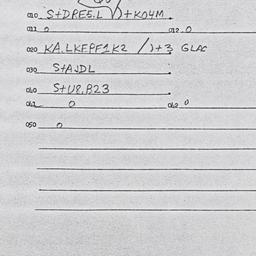 010 S+DPE5.L V)+KO4M.
011 0 012.0
020 KA.LKFPF1K2 /)+3 GLAC
030 S+AJDL
040 S+U8,B23
041 0 042 0
050 0